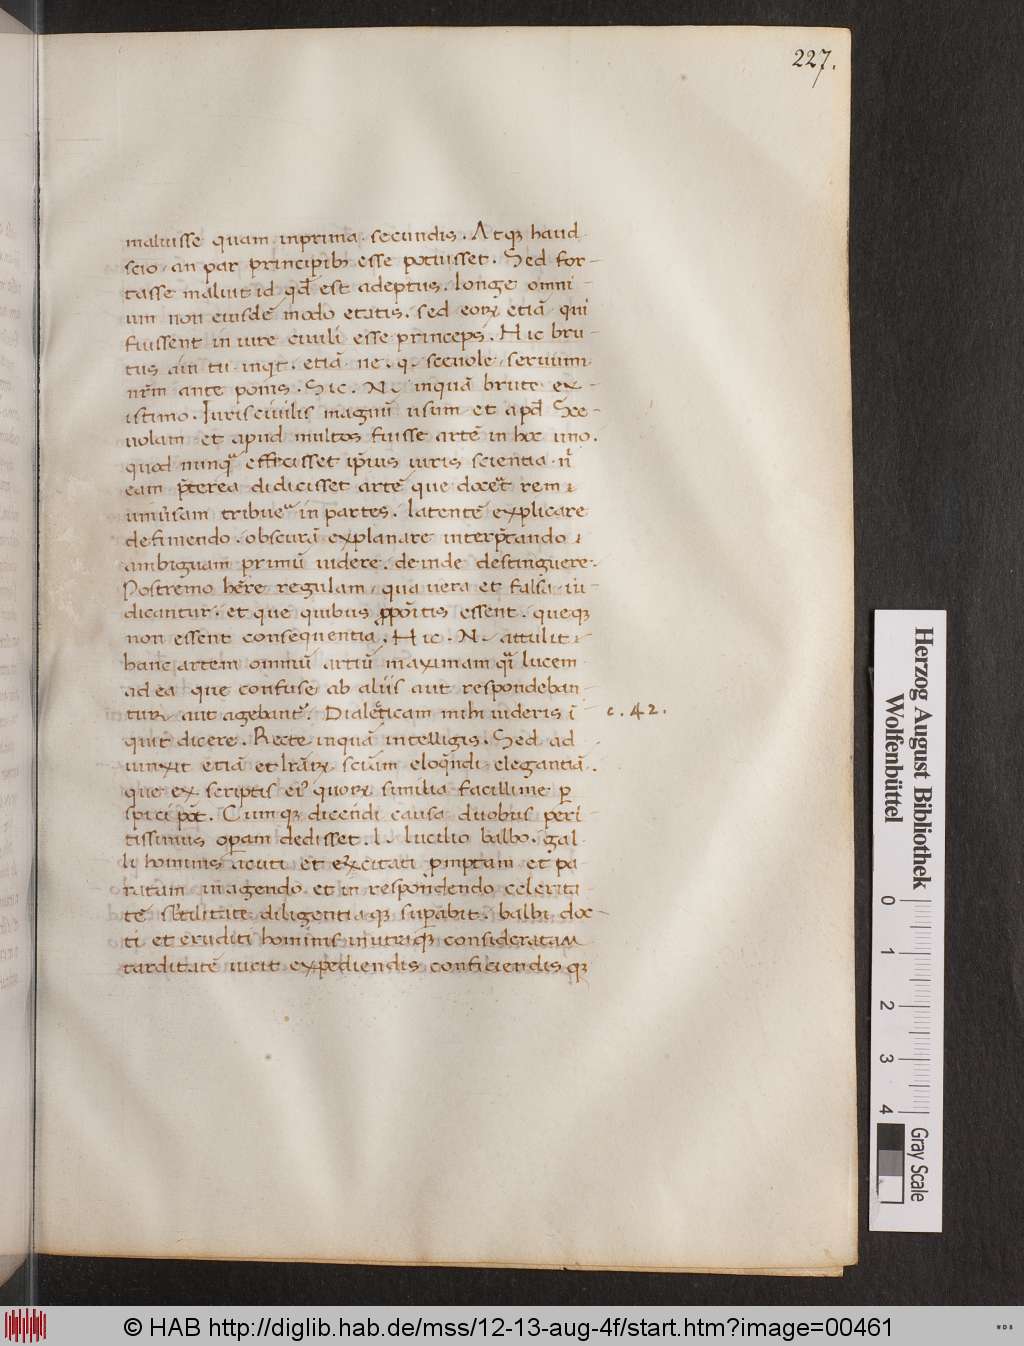 227.
maluisse quam in prima secundis. Atqꝫ haud
scio an par principibꝫ esse potuisset. Sed for-
tasse maluit id qđ est adeptus. longe omni-
um non eiusdē modo etatis. sed eorꝝ etiā qui
fuissent in iure ciuili esse princeps. Hic bru-
tus ain tu inqt. etiā ne. q. sceuole seruium
nr̄m ante ponis. Sic. N. inquā brute ex-
istimo. Iuris ciuilis magnū usum et apđ Sce-
uolam et apud multos fuisse artē in hoc uno.
quod nunqᵃ effecisset ip̄ius iuris scientia n̄
eam p̄terea didicisset artē que docet rem
uniūsam tribueᵉ in partes. latentē explicare
definiendo. obscurā explanare interp̄tando
ambiguam primū uidere. deinde destinguere.
Postremo hēre regulam qua uera et falsa iu-
dicantur. et que quibus ꝓpoitis essent. queqꝫ
non essent consequentia. Hic. N. attulit
hanc artem omniū artiū maximam qͣi lucem
ad ea que confuse ab aliis aut respondeban-
tur aut agebantᵉ. Dialeticam mihi uideris ī
c. 42.
quit dicere. Recte inquā intelligis. Sed ad
iunxit etiā et lrārꝝ sciam eloqndi elegantiā.
que ex scriptis eiꝰ quorꝝ similia facillime ꝑ
spici pōt. Cumqꝫ dicendi causa duobus peri-
tissimis opam dedisset. l. lucilio balbo. gal
li hominis acuti et exercitati promptam et pa
ratam in agendo et in respondendo celerita-
tē sbtilitate diligentiaqꝫ suꝑabit. balbi doc-
ti et eruditi hominis in utriqꝫ consideratam
tarditatē uicit expediendis conficiendisqꝫ
Herzog August Bibliothek
Wolfenbüttel
0 1 2 3 4
Gray Scale
© HAB http://diglib.hab.de/mss/12-13-aug-4f/start.htm?image=00461